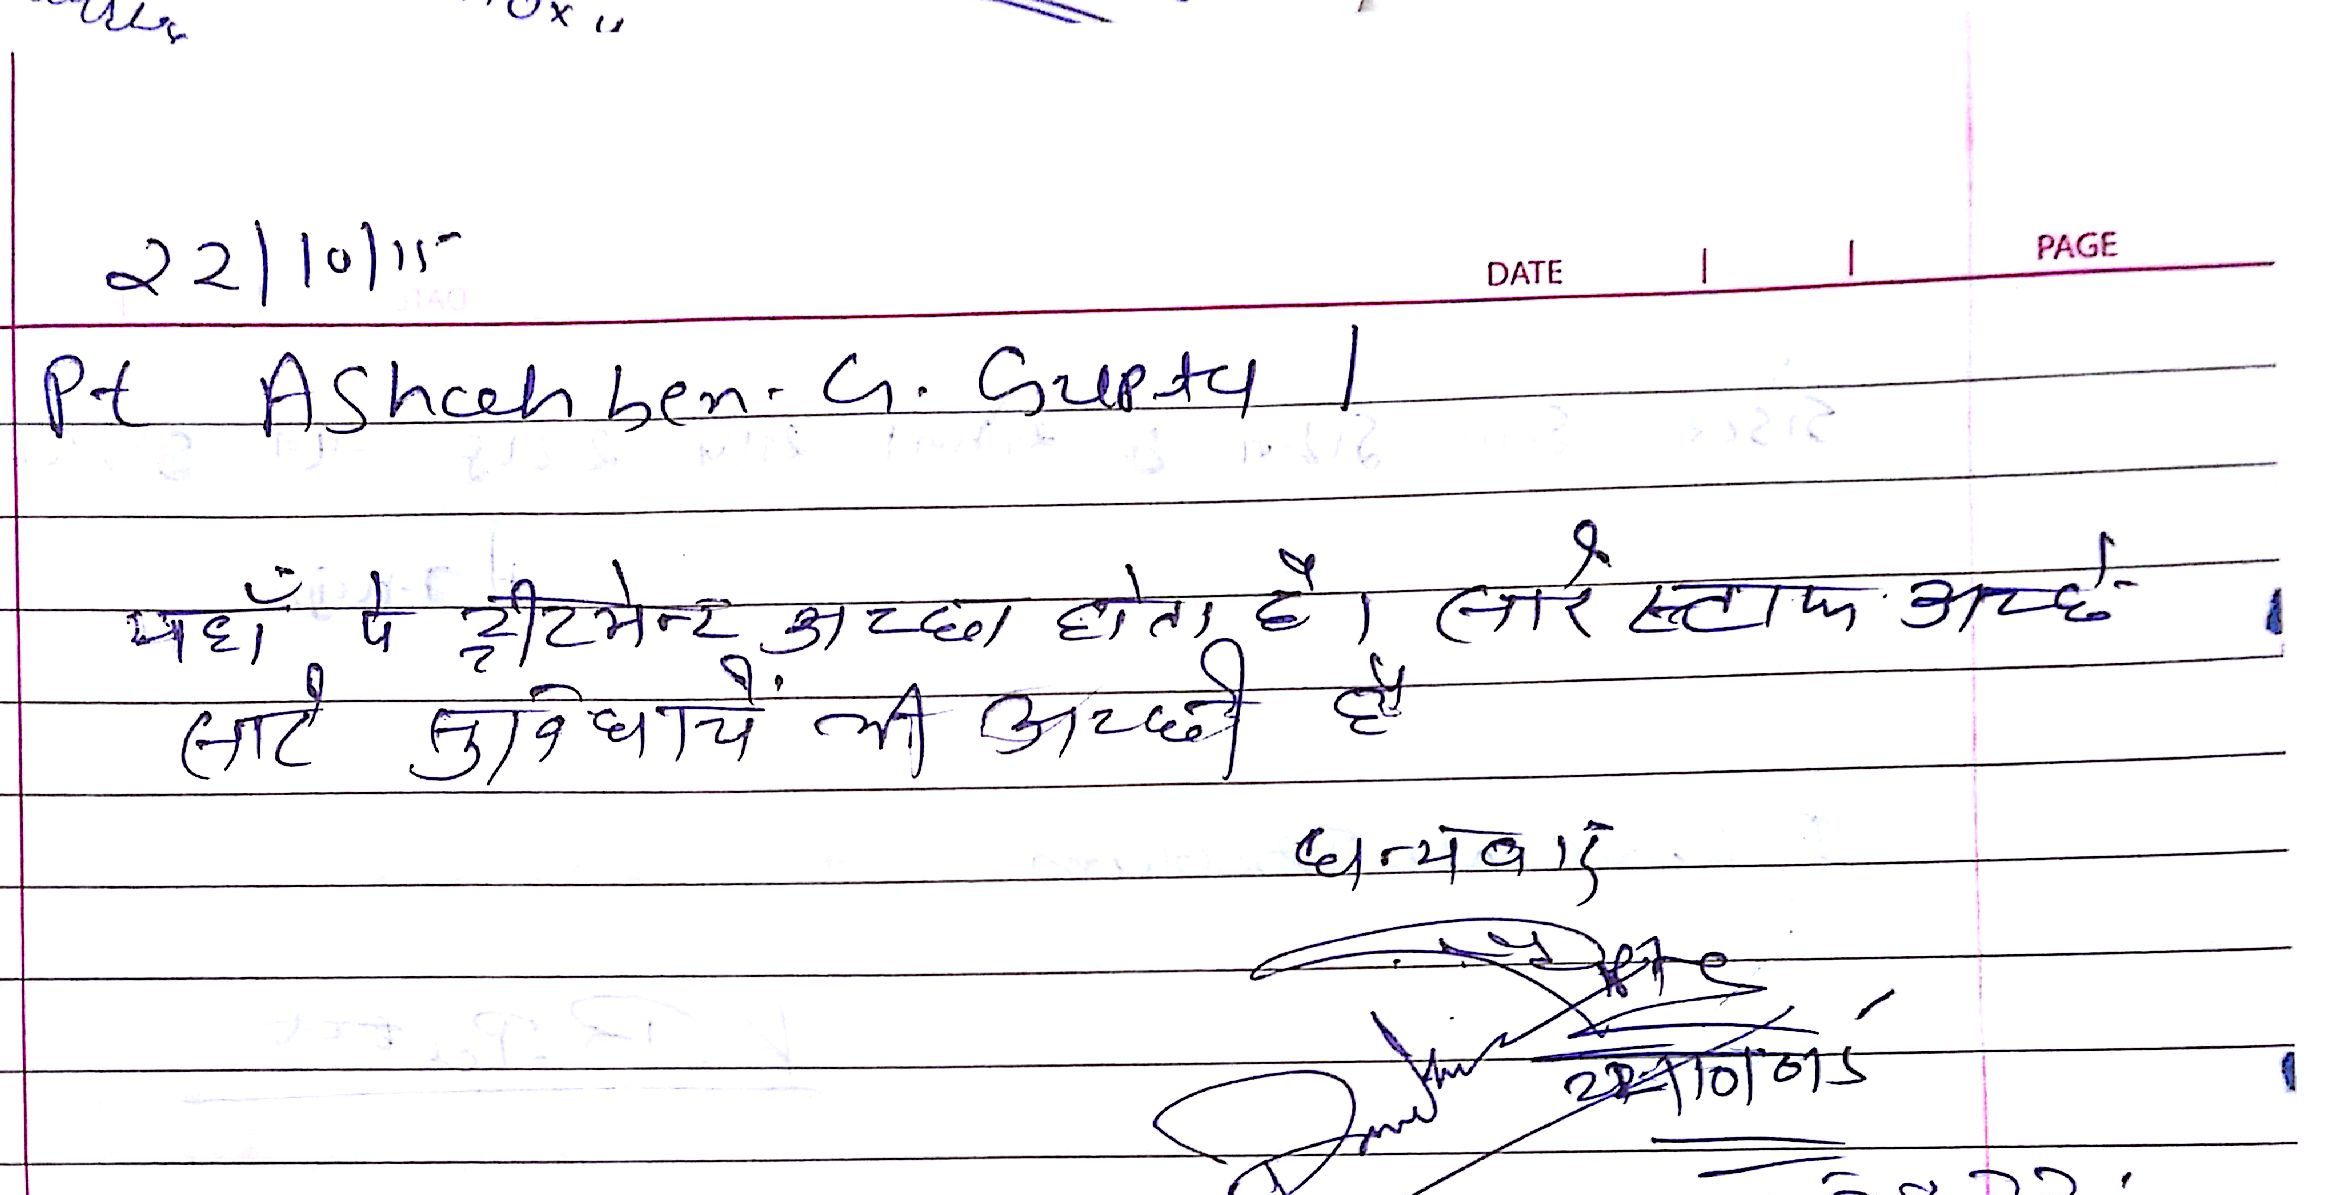 22/10/15
DATE | | PAGE
Pt Ashaben. G. Gupta |
यहाँ पे ट्रीटमेन्ट अच्छा होता है। सारे स्टाफ अच्छे
सारे सुविधायें भी अच्छी है
धन्यवाद
22/10/015